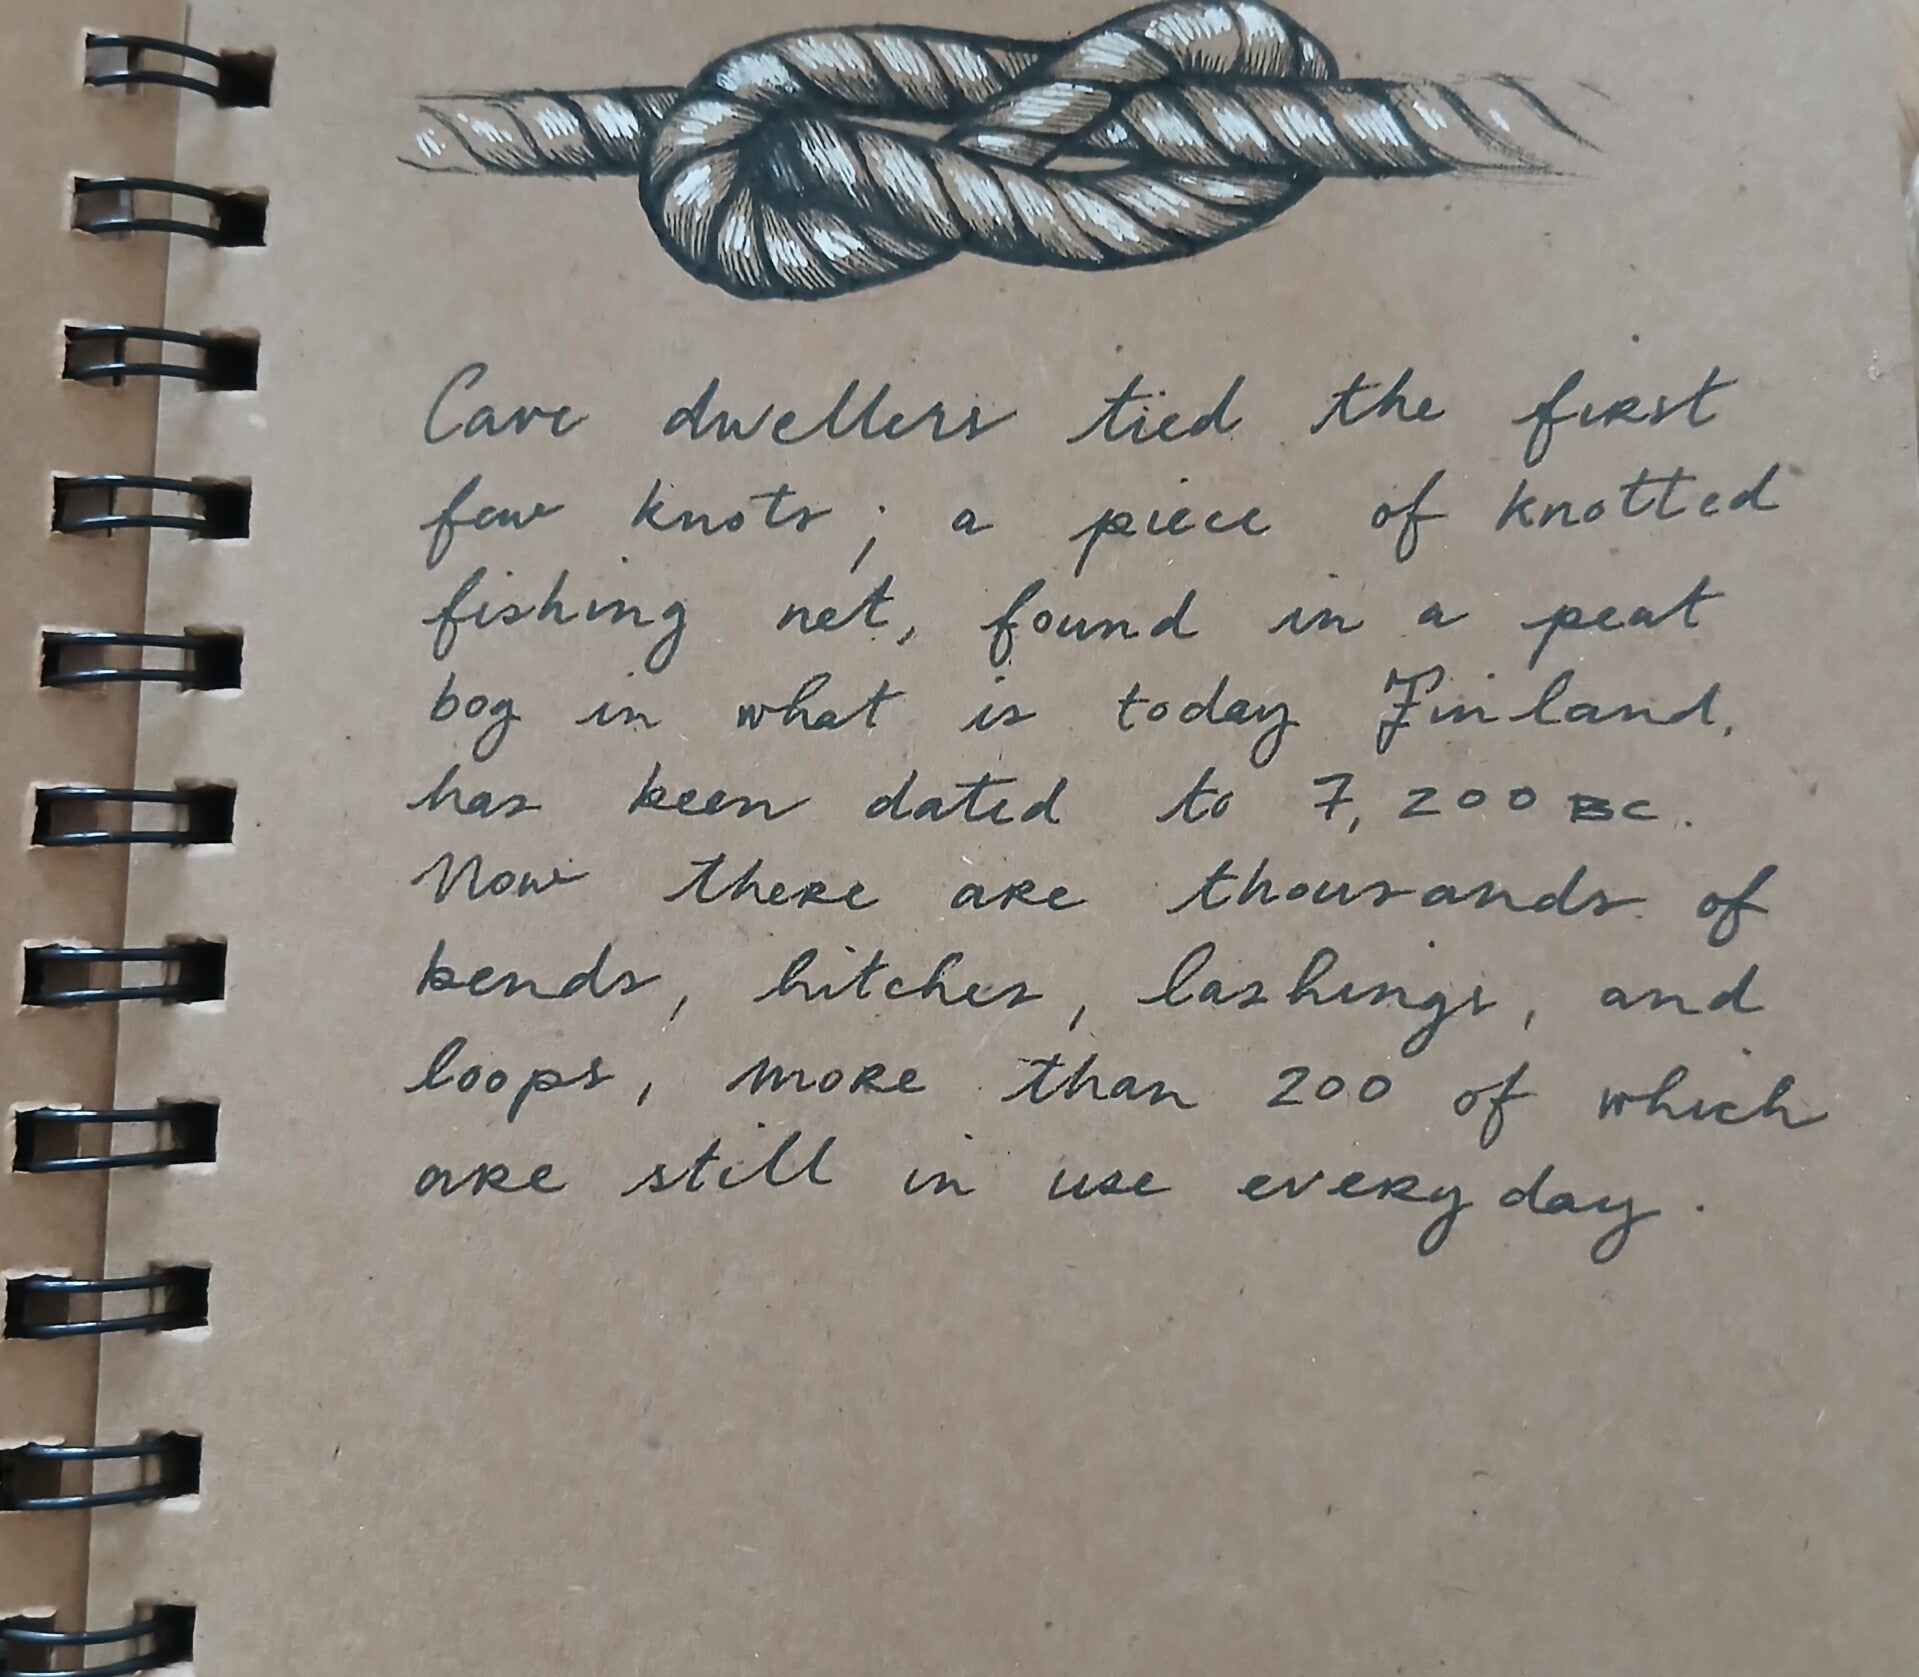 Cave dwellers tied the first
few knots; a piece of knotted
fishing net, found in a peat
bog in what is today Finland,
has been dated to 7,200 BC.
Now there are thousands of
bends, hitches, lashings, and
loops, more than 200 of which
are still in use every day.